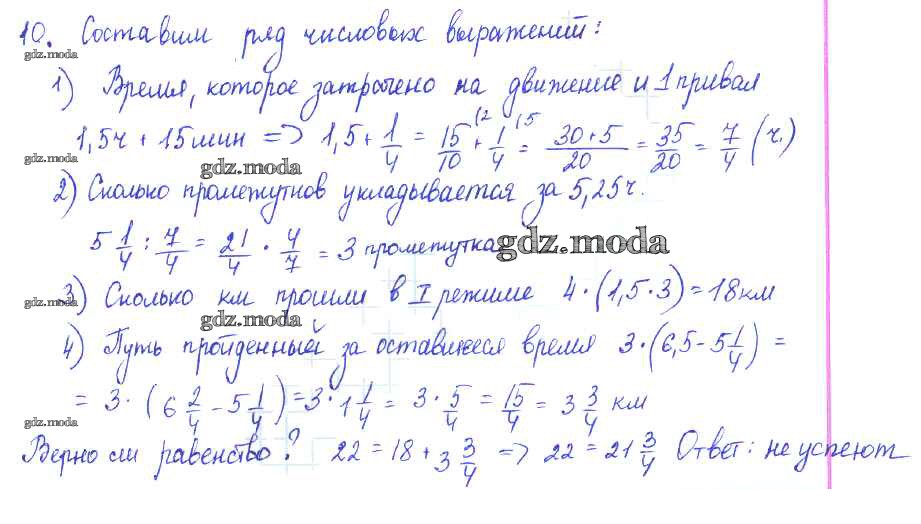 10. Составим ряд числовых выражений:
gdz.moda
1) Время, которое затрачено на движение и 1 привал
1,5ч + 15мин => 1,5 + 1/4 = 15/10 (2 + 1/4 (5 = 30+5/20 = 35/20 = 7/4 (ч.)
gdz.moda gdz.moda
2) Сколько промежутков укладывается за 5,25ч.
5 1/4 : 7/4 = 21/4 · 4/7 = 3 промежутка
gdz.moda
gdz.moda
3) Сколько км прошли в I режиме 4·(1,5·3)=18км
gdz.moda
4) Путь пройденный за оставшееся время 3·(6,5-5 1/4) =
= 3·(6 2/4 - 5 1/4) = 3·1 1/4 = 3·5/4 = 15/4 = 3 3/4 км
gdz.moda
Верно ли равенство? 22 = 18 + 3 3/4 => 22 = 21 3/4 Ответ: не успеют